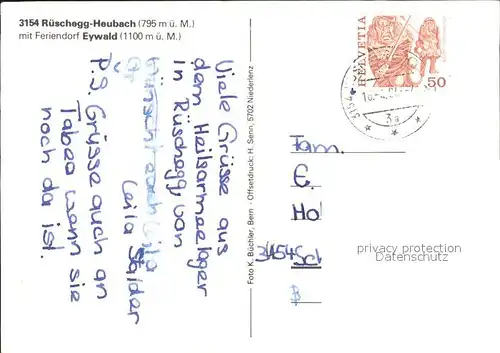 3154 Rüschegg-Heubach (795 m ü. M.)
mit Feriendorf Eywald (1100 m ü. M.)
Viele Grüsse aus
dem Heilsarmeelager
in Rüschegg, von
Leila Stalder
P.S. Grüsse auch an
Tabea wann sie
noch da ist.
Foto K. Büchler, Bern · Offsetdruck: H. Senn, 5702 Niederlenz
HELVETIA
50
3154
3a
Fam.
E.
Hol
3454 Sch
privacy protection
Datenschutz